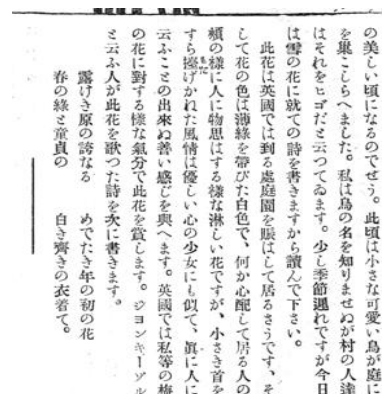 の美しい頃になるのでせう。此頃は小さな可愛い鳥が庭に
を巣こしらへました。私は鳥の名を知りませぬが村の人達
はそれをヒゴだと云つてゐます。少し季節遅れですが今日
は雪の花に就ての詩を書きますから讀んで下さい。
此花は英國では到る處庭園を賑はして居るさうです、そ
して花の色は薄緑を帶びた白色で、何か心配して居る人の
頬の樣に人に物思はする樣な淋しい花ですが、小さき首を
すら擡げかれた風情は優しい心の少女にも似て、眞に人に
云ふことの出來ぬ善い感じを與へます。英國では私等の梅
の花に對する樣な氣分で此花を賞します。ジヨンキーゾル
と云ふ人が此花を歌つた詩を次に書きます。
露けき原の誇なる　めでたき年の初の花
春の綠と童貞の　白き齊きの衣着て。